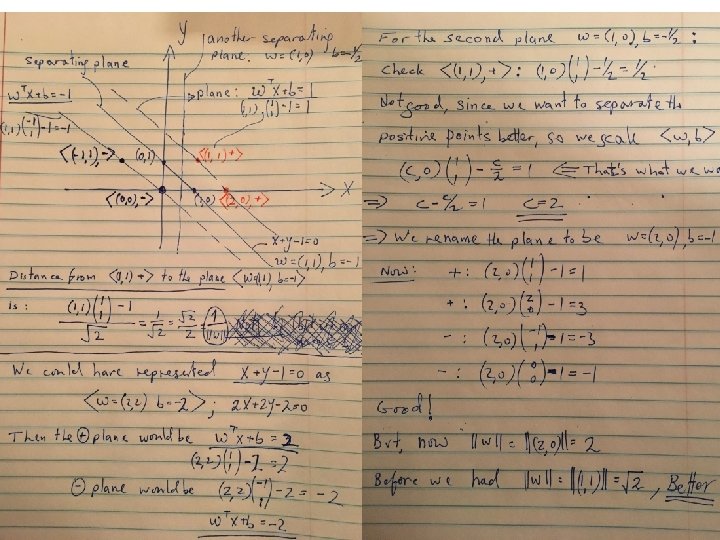 y
another separating
plane: w=(1,0) b=-1/2
separating plane
wᵀx+b=-1
plane: wᵀx+b=1
(1,1)(1 1)-1=1
(1,1)(-1 1)-1=-1
<(-1,1),->
(0,1)
<(1,1)+>
<(0,0),->
(1,0)
<(2,0),+>
x
x+y-1=0
w=(1,1), b=-1
Distance from <(1,1)+> to the plane <w=(1,1) b=-1>
is: ((1,1)(1 1)-1)/√2 = 1/√2 = √2/2 = 1/||w||
We could have represented x+y-1=0 as
<w=(2,2) b=-2>; 2x+2y-2=0
Then the ⊕ plane would be wᵀx+b=2
(2,2)(1 1)-2=2
⊖ plane would be (2,2)(-1 1)-2=-2
wᵀx+b=-2
For the second plane w=(1,0), b=-1/2:
check <(1,1),+>: (1,0)(1 1)-1/2=1/2.
Not good, since we want to separate the
positive points better, so we scale <w,b>
(c,0)(1 1)-c/2=1 ⇐ That's what we
⇒ c-c/2=1 c=2
⇒ We rename the plane to be w=(2,0), b=-1
Now: +: (2,0)(1 1)-1=1
+: (2,0)(2 0)-1=3
-: (2,0)(-1 1)-1=-3
-: (2,0)(0 0)-1=-1
Good!
But, now ||w||=||(2,0)||=2
Before we had ||w||=||(1,1)||=√2, Better